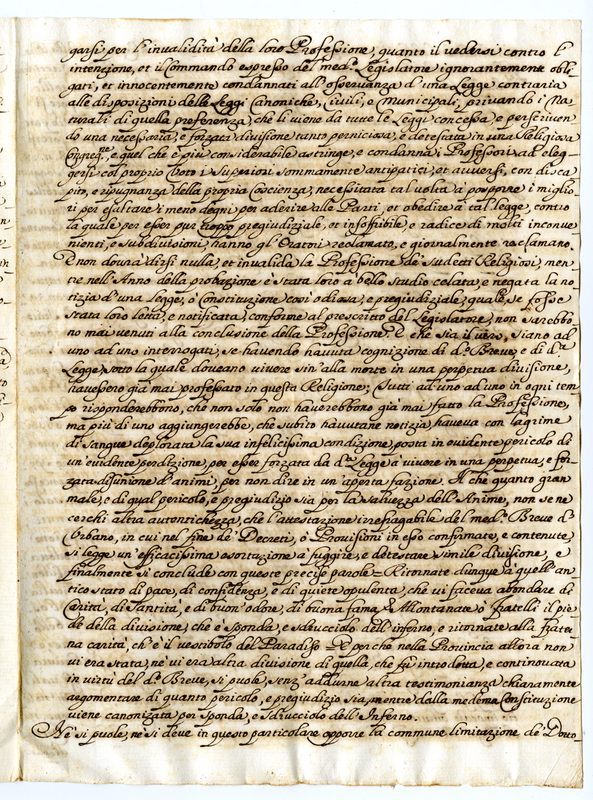 garsi per l'invalidità della loro Professione, quanto il vedersi contro l'
intenzione, et il Commando espresso del med.o Legislatore ignorantemente obli-
gati, et innocentemente condannati all'osservanza d'una Legge contraria
alle disposizioni delle Leggi Canoniche, Civili, e Municipali, privando i Na-
turali di quella preferenza, che li viene da tutte le Leggi concessa, e perscriven-
do una necessaria, e forzata divisione tanto perniciosa, e detestata in una Religiosa
Congreg.ne, e quel che è più considerabile astringe, e condanna i Professori ad eleg-
gersi col proprio Voto i Superiori sommamente antipatici, et avversi, con disca-
pito, e ripugnanza della propria Coscienza, necessitata tal volta à posporre i miglio-
ri per esaltare i meno degni per aderire alle Parti, et obedire à tal legge, contro
la quale per esser pur troppo pregiudiziale, et insoffribile, e radice di molti inconve-
nienti, e subdivisioni, hanno gl'Oratori reclamato, e giornalmente reclamano.
E non dourà dirsi nulla, et invalida la Professione de' sudetti Religiosi, men-
tre nell'Anno della probazione è stata loro a bello studio celata, e negata la no-
tizia d'una Legge, ò Constituzione così odiosa, e pregiudiziale, quale se fosse
stata loro letta, e notificata, conforme al prescritto del Legislatore, non sarebbo-
no mai venuti alla conclusione della Professione. E che sia il vero, siano ad
uno ad uno interrogati, se havendo havuta cognizione di d.o Breve, e di d.a
Legge, sotto la quale doveano vivere sin'alla morte in una perpetua divisione,
havessero già mai professato in questa Religione; Tutti ad uno ad uno in ogni tem-
po risponderebbono, che non solo non haverebbono già mai fatto la Professione,
ma più di uno aggiungerebbe, che subito havutane notizia, haveva con lagrime
di sangue deplorata la sua infelicissima condizione, posta in evidente pericolo di
un'evidente perdizione, per esser forzata da d.a Legge à vivere in una perpetua, e for-
zata disunione d'animi, per non dire in un'aperta fazione. Il che quanto gran
male, e di qual pericolo, e pregiudizio sia per la salvezza dell'Anime, non se ne
cerchi altra autentichezza, che l'attestazione irrefragabile del med.o Breve d'
Urbano, in cui nel fine de' Decreti, ò Provisioni in esso confirmate, e contenute
si legge un'efficacissima esortazione a fuggire, e detestare simile divisione, e
finalmente si conclude con queste precise parole = Ritornate dunque à quell'an-
tico stato di pace, di confidenza, e di quiete opulenta, che vi faceva abondare di
Carità, di Santità, e di buon'odore, di buona fama, & Allontanate ò Fratelli il pie-
de della divisione, che è sponda, e sdrucciolo dell'inferno, e ritornate alla frater-
na carità, ch'è il vestibolo del Paradiso. E perchè nella Provincia allora non
vi era stata, nè vi era altra divisione di quella, che fù introdotta, e continovata
in virtù del d.o Breve, si puole, senz'addurne altra testimonianza chiaramente
argomentare di quanto pericolo, e pregiudizio sia, mentre dalla medema Constituzione
viene canonizata per sponda, e sdrucciolo dell'Inferno.
Nè si puole, nè si deve in questo particolare opporre la commune limitazione de' Dotto-